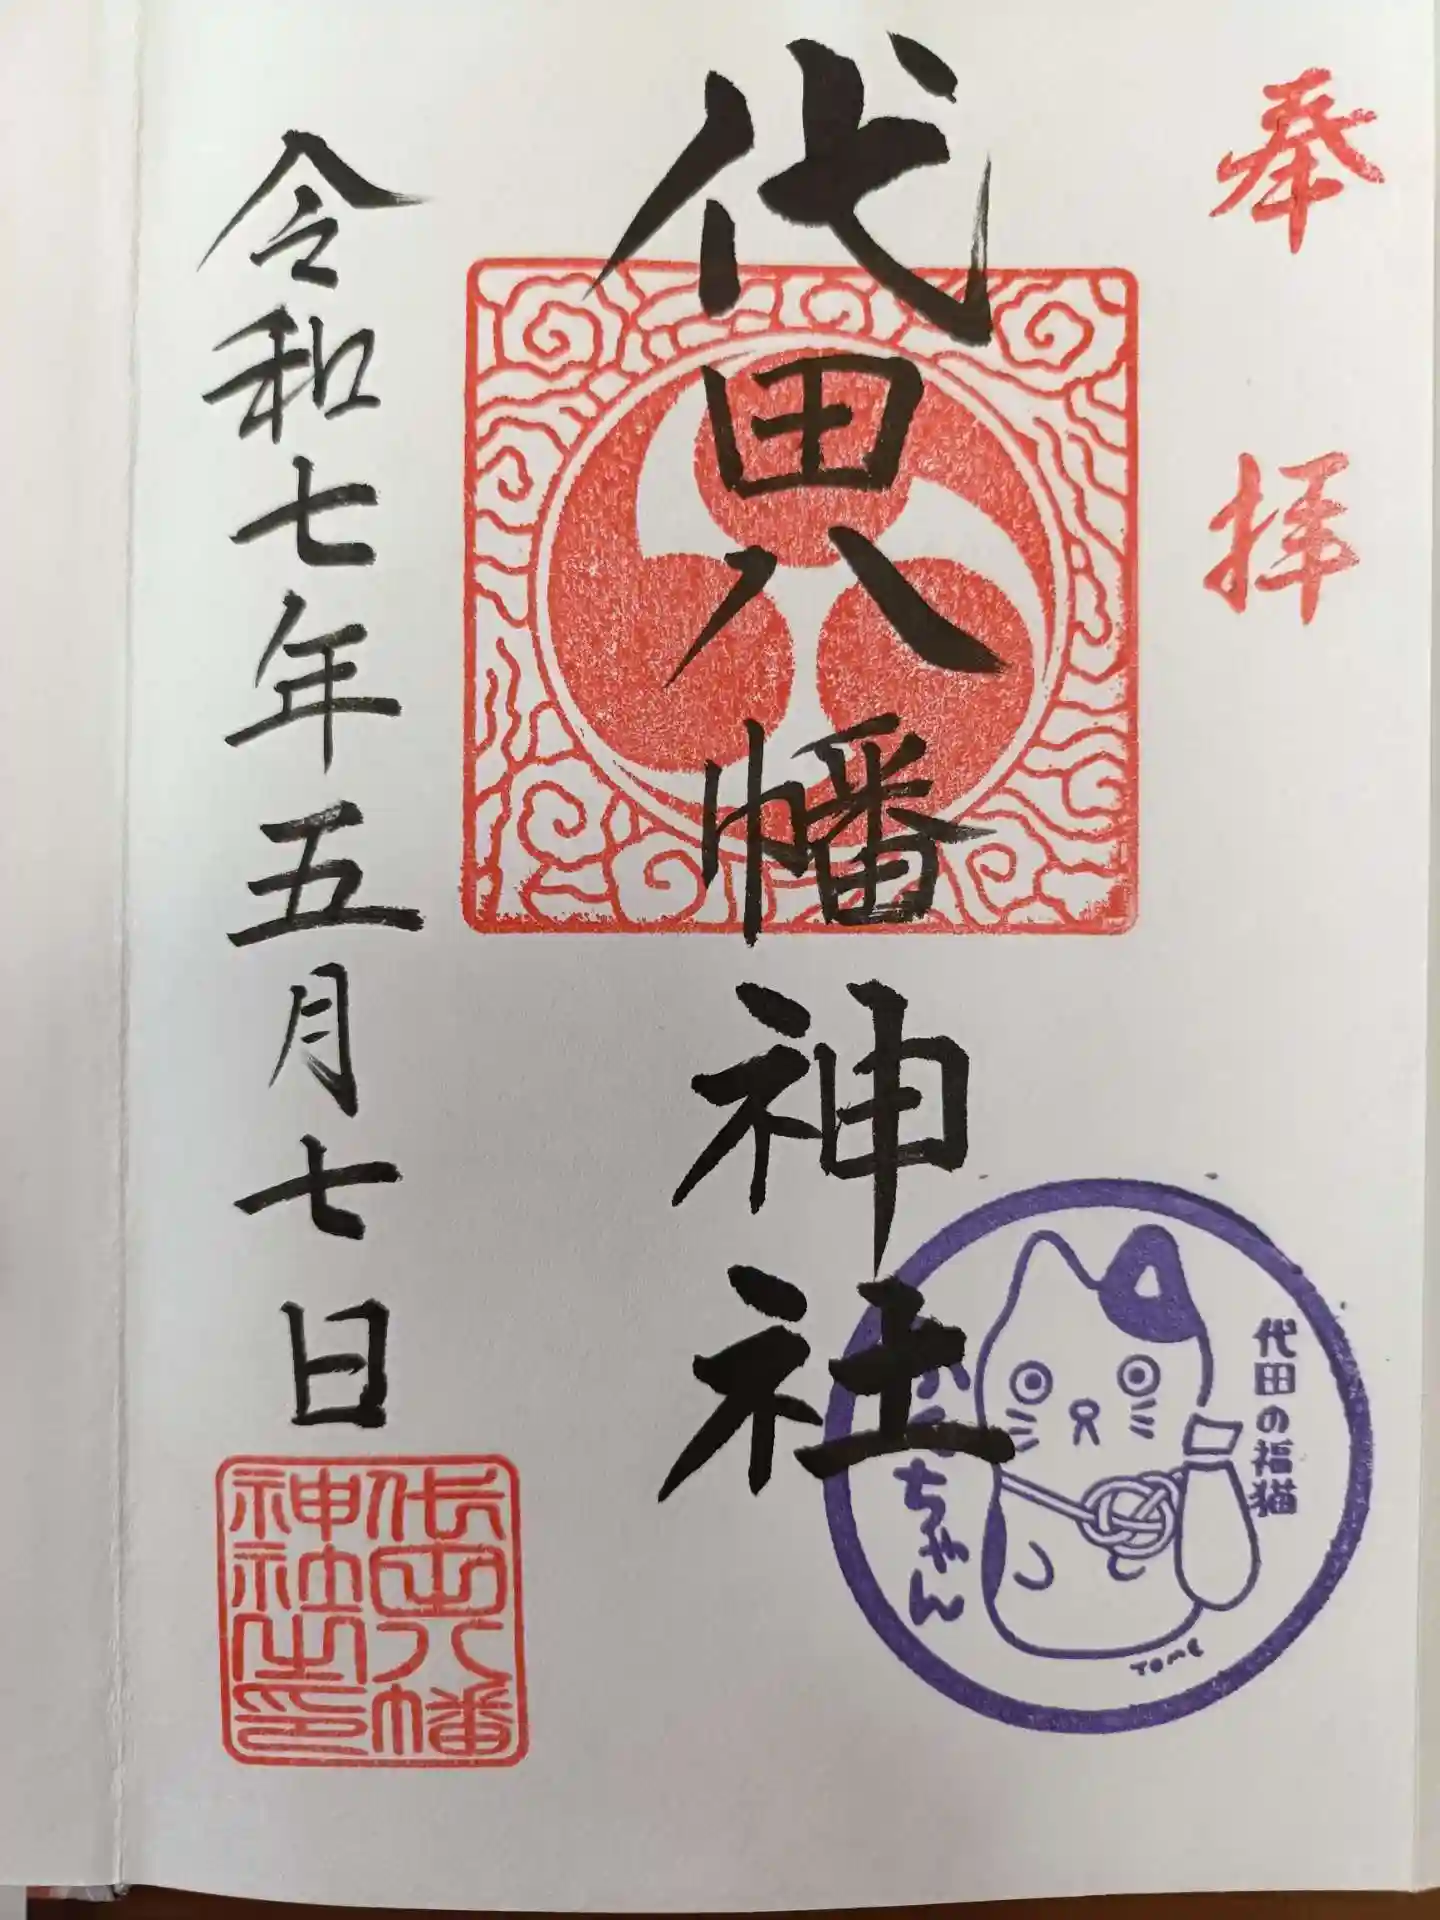 奉拝
代田八幡神社
代田の福猫
ちゃん
TOME
令和七年五月七日
代田八幡
神社之印